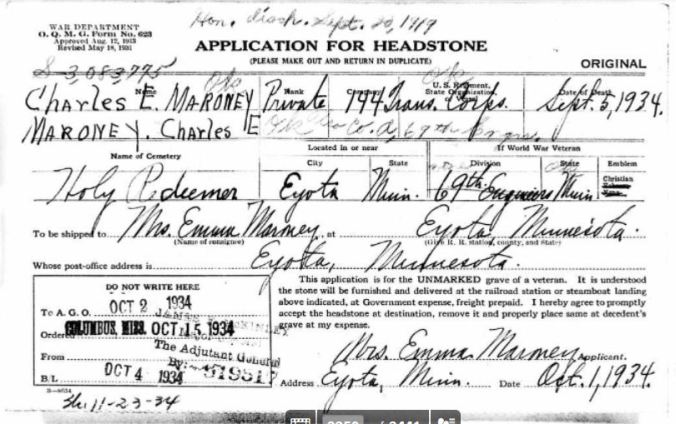 WAR DEPARTMENT
O. Q. M. G. Form No. 623
Approved Aug. 12, 1913
Revised May 18, 1931
Hon. disch. Sept. 20, 1919
APPLICATION FOR HEADSTONE
(PLEASE MAKE OUT AND RETURN IN DUPLICATE)
ORIGINAL
S-3,083,775
Name Rank Company U. S. Regiment, State Organization, Date of Death
Charles E. MARONEY Private 144 Trans. Corps. Sept. 5, 1934.
MARONEY. Charles E Co. A, 69th Engrs.
Name of Cemetery Located in or near If World War Veteran
City State Division State Emblem
Holy Redeemer Eyota Minn. 69th Engineers Minn Christian
To be shipped to Mrs. Emma Maroney, at Eyota, Minnesota.
(Name of consignee) (Give R. R. station, county, and State)
Whose post-office address is Eyota, Minnesota.
DO NOT WRITE HERE
To A. G. O. OCT 2 1934
Ordered COLUMBUS, MISS. OCT 15 1934
The Adjutant General
From
By:
B/L OCT 4 1934
Sh. 11-23-34
This application is for the UNMARKED grave of a veteran. It is understood
the stone will be furnished and delivered at the railroad station or steamboat landing
above indicated, at Government expense, freight prepaid. I hereby agree to promptly
accept the headstone at destination, remove it and properly place same at decedent's
grave at my expense.
Mrs. Emma Maroney Applicant.
Address Eyota, Minn. Date Oct. 1, 1934.